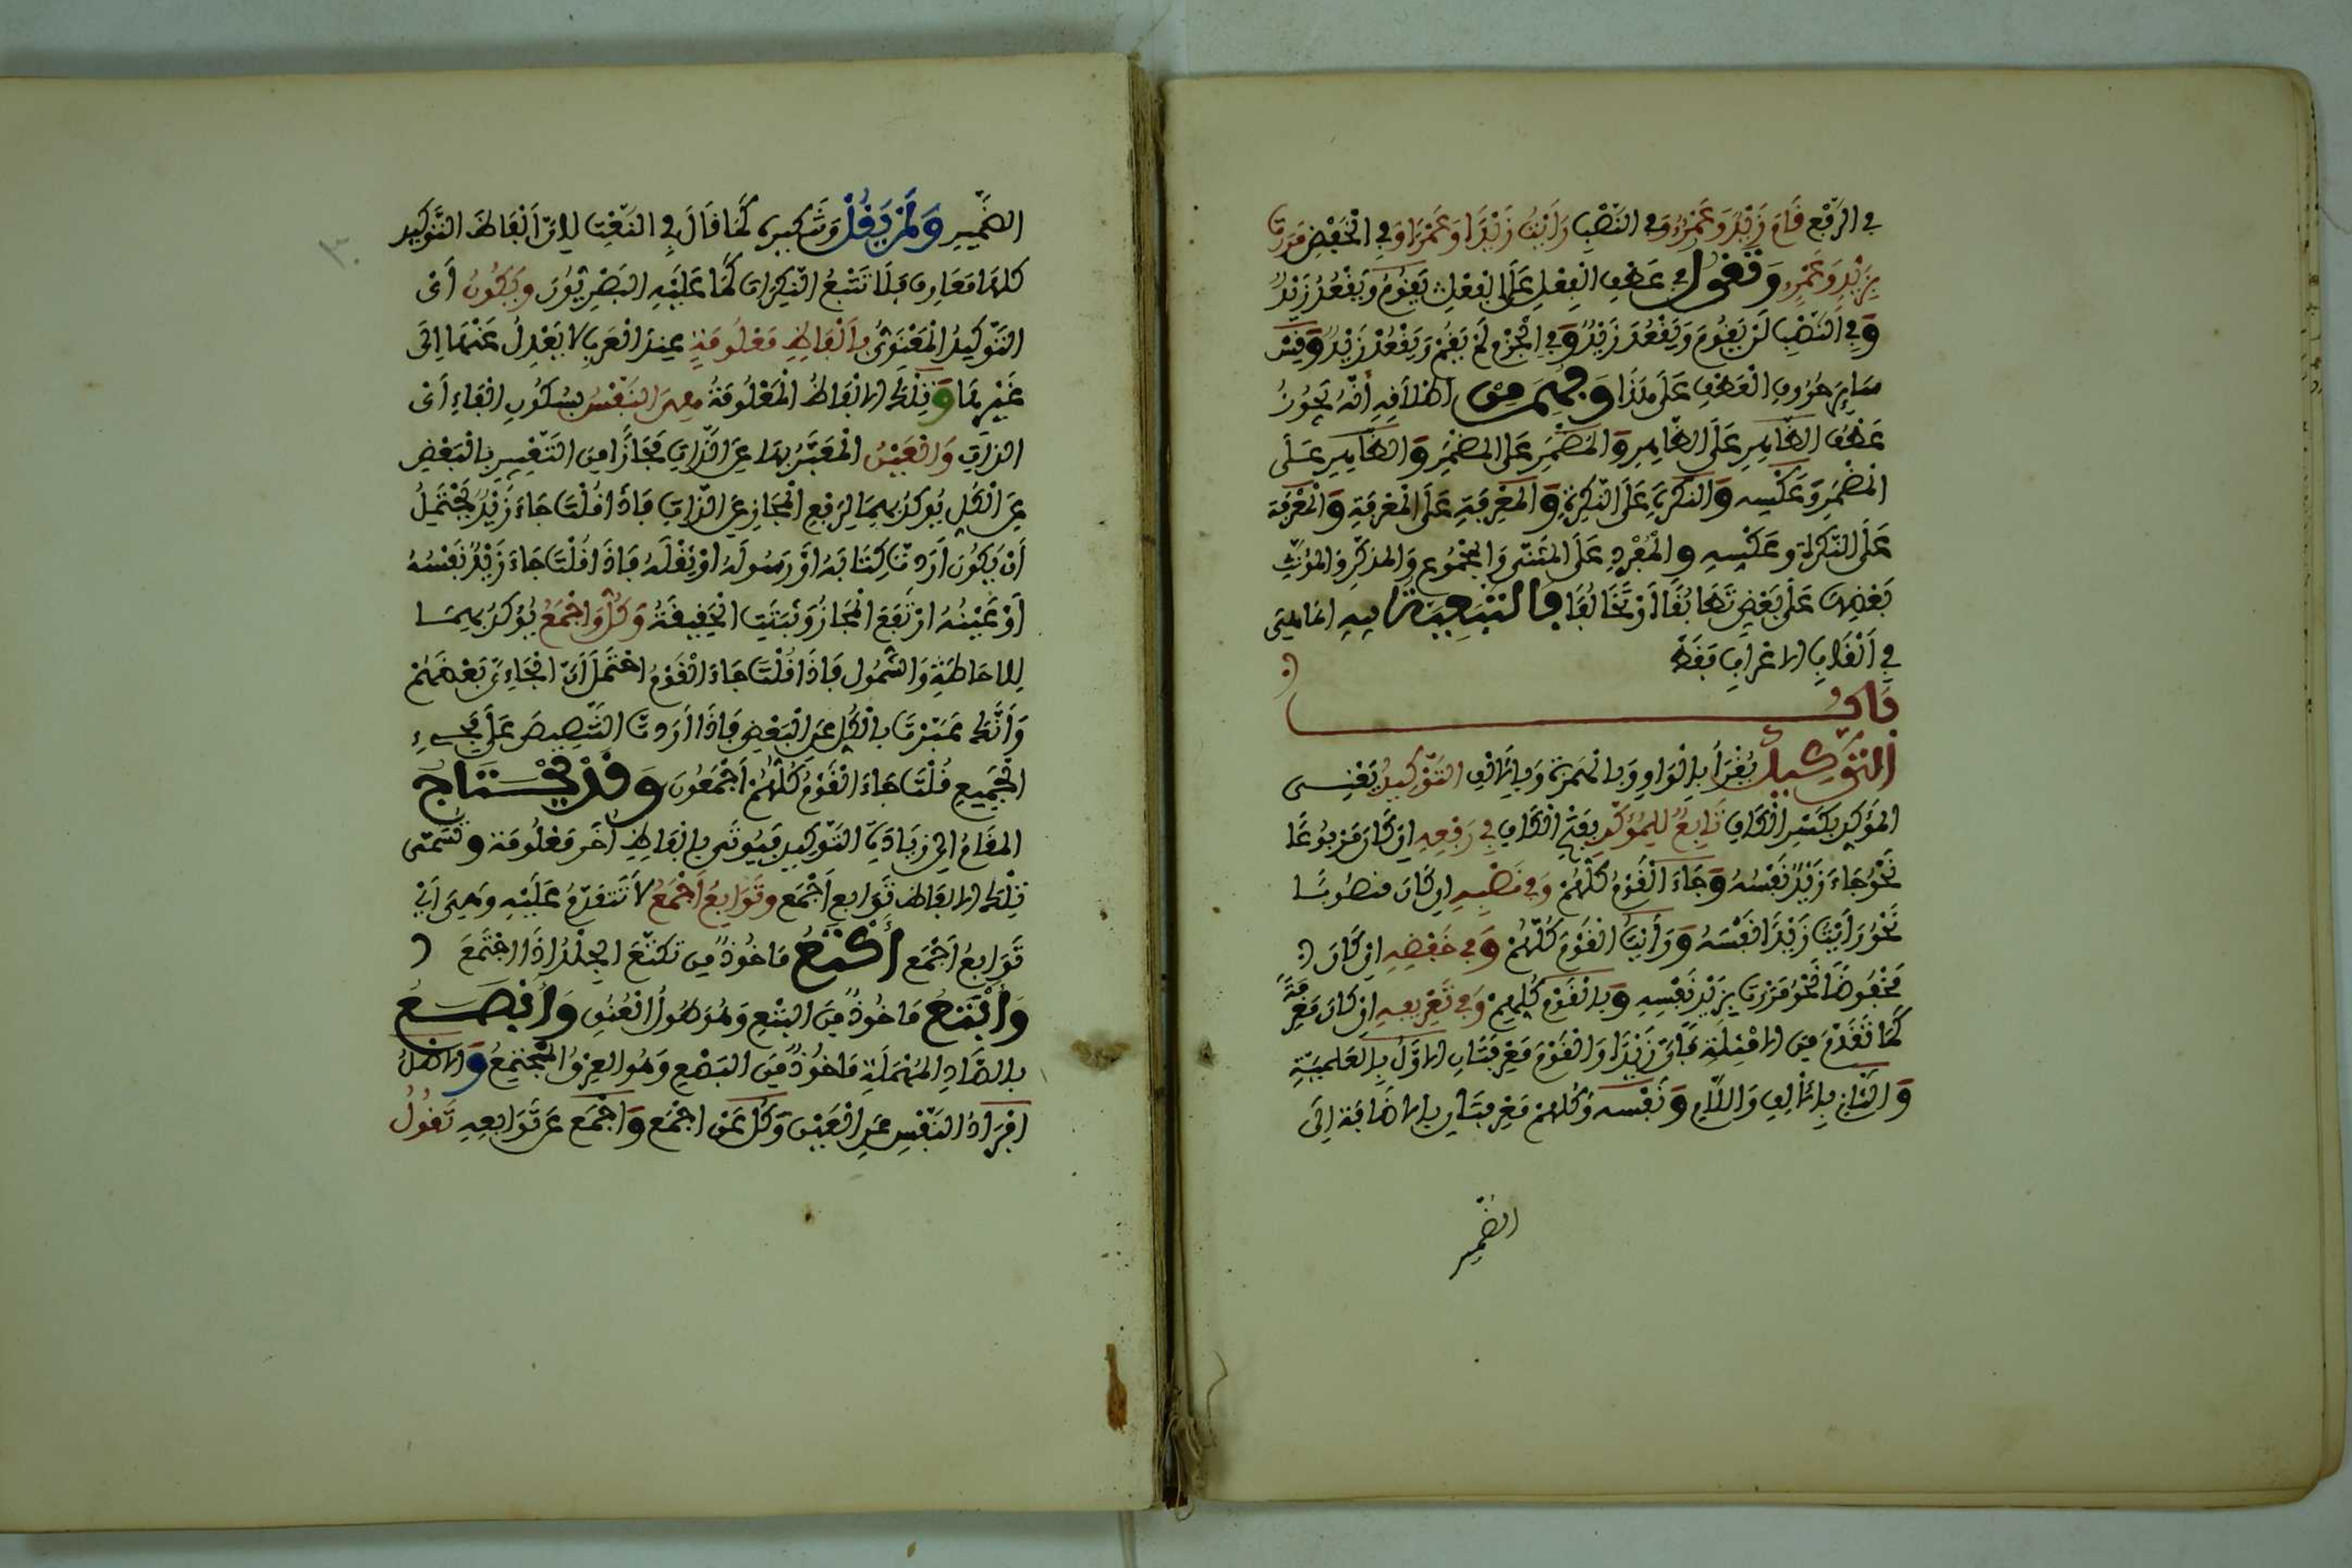 في الرَّفْعِ قَامَ زَيْدٌ وَعَمْرٌو وَفي النَّصْبِ رَأَيْتُ زَيْدًا وَعَمْرًا وَفي الْخَفْضِ مَرَرْتُ
بِزَيْدٍ وَعَمْرٍو وَتَقُولُ في عَطْفِ الْفِعْلِ عَلَى الْفِعْلِ يَقُومُ وَيَقْعُدُ زَيْدٌ
وَفي النَّصْبِ لَنْ يَقُومَ وَيَقْعُدَ زَيْدٌ وَفي الْجَزْمِ لَمْ يَقُمْ وَيَقْعُدْ زَيْدٌ وَقِسْ
سَائِرَ حُرُوفِ الْعَطْفِ عَلَى هَذَا وَفُهِمَ مِنْ إطْلَاقِهِ أَنَّهُ يَجُوزُ
عَطْفُ الظَّاهِرِ عَلَى الظَّاهِرِ وَالْمُضْمَرِ عَلَى الْمُضْمَرِ وَالظَّاهِرِ عَلَى
الْمُضْمَرِ وَعَكْسِه وَالنَّكِرَةِ عَلَى النَّكِرَةِ وَالْمَعْرِفَةِ عَلَى الْمَعْرِفَةِ وَالْمَعْرِفَة
عَلَى النَّكِرَةِ وَعَكْسِهِ وَالْمُفْرَدِ عَلَى الْمُثَنَّى وَالْمَجْمُوعِ وَالْمُذَكَّرِ وَالْمُؤَنَّثِ
بَعْضِهَا عَلَى بَعْضٍ تَطَابُقًا أَوْ تَخَالُفًا وَالتَّبَعِيَّة فِيهِ إنَّمَا هِيَ
في أَلْقَابِ الْإعْرَابِ فَقَطْ
بَابُ
التَّوْكِيدِ يُقْرَأُ بِالْوَاوِ وَبِالْهَمْزَةِ وَبِالْأَلِفِ التَّوْكِيدُ يَعْنِي
الْمُؤَكِّدِ بِكَسْرِ الْكَافِ تَابِعٌ لِلْمُؤَكَّدِ بِفَتْحِ الْكَافِ في رَفْعِهِ إنْ كَانَ مَرْفُوعًا
نَحْوُ جَاءَ زَيْدٌ نَفْسُهُ وَجَاءَ الْقَوْمُ كُلُّهُمْ وَفي نَصْبِهِ إن كَانَ مَنْصُوبًا
نَحْوُ رَأَيْتُ زَيْدًا نَفْسَهُ وَرَأَيْتُ الْقَوْمَ كُلَّهُمْ وَفي خَفْضِهِ إنْ كَانَ
مَخْفُوضًا نَحْوُ مَرَرْتُ بِزَيْدٍ نَفْسِهِ وَبِالْقَوْمِ كُلِّهِمْ وَفي تَعْرِيفِهِ إنْ كَانَ مَعْرِفَةً
كَمَا تَقَدَّمَ مِنَ الْأَمْثِلَةِ فَإنَّ زَيْدًا وَالْقَوْمَ مَعْرِفَتَانِ الْأَوَّلُ بِالْعَلَمِيَّةِ
وَالثَّانِي بِالْأَلِفِ وَاللَّامِ وَنَفْسه وَكُلّهُمْ مَعْرِفَتَانِ بِالْإضَافَةِ إلَى
الضمير
الضَّمِيرِ وَلَمْ يَقُلْ وَتَنْكِيرِهِ كَمَا قَالَ فِي النَّعْتِ لِأَنَّ أَلْفَاظَ التَّوْكِيدِ
كُلَّهَا مَعَارِف فَلَا تَتْبَعُ النَّكِرَاتِ كَمَا عَلَيْهِ الْبَصْرِيُّونَ وَيَكُونُ أَيْ
التَّوْكِيدُ الْمَعْنَوِيُّ بِأَلْفَاظٍ مَعْلُومَةٍ عِنْدَ الْعَرَبِ لَا يُعْدَلُ عَنْهَا إلَى
غَيْرِهَا وَتِلْكَ الْأَلْفَاظُ الْمَعْلُومَةُ هِيَ النَّفْسُ بِسُكُونِ الْفَاءِ أَيْ
الذَّاتِ وَالْعَيْنُ الْمُعَبَّرُ بِهَا عَنِ الذَّاتِ مَجَازًا مِنَ التَّعْبِيرِ بِالْبَعْضِ
عَنِ الْكُلِّ يُؤَكَّدُ بِهِمَا لِرَفْعِ الْمَجَازِ عَنِ الذَّاتِ فَإذَا قُلْتَ جَاءَ زَيْدٌ يَحْتَمِلُ
أَنْ يَكُونَ أَرَدْتَ كِتَابَهُ أَوْ رَسُولَهُ أَوْ ثِقْلَهُ فَإذَا قُلْتَ جَاءَ زَيْدٌ نَفْسُهُ
أَوْ عَيْنُهُ ارْتَفَعَ الْمَجَازُ وَثَبَتَتِ الْحَقِيقَةُ وَكُلٌّ وَأَجْمَعُ يُؤَكَّدُ بِهِمَا
لِلْإحَاطَةِ وَالشُّمُولِ فَإذَا قُلْتَ جَاءَ الْقَوْمُ احْتَمَلَ أَنَّ الْجَاءِيَ بَعْضُهُمْ
وَأَنَّكَ عَبَّرْتَ بِالْكُلِّ عَنِ الْبَعْضِ فَإذَا أَرَدْتَ التَّنْصِيصَ عَلَى مَجِيءِ
الْجَمِيعِ قُلْتَ جَاءَ الْقَوْمُ كُلُّهُمْ أَجْمَعُونَ وَقَدْ يَحْتَاجُ
الْمَقَامُ إلَى زِيَادَةِ التَّوْكِيدِ فَيُوتَى بِأَلْفَاظٍ أُخَرَ مَعْلُومَة وَتُسَمَّى
تِلْكَ الْأَلْفَاظُ تَوَابِع أَجْمَع وَتَوَابِعُ أَجْمَعُ لَا تَتَقَدَّمُ عَلَيْهِ وَهِيَ أَيْ
تَوَابِعُ أَجْمَعَ أَكْتَعُ مَاخُوذٌ مِن تَكَتَّعَ الْجِلْدُ إذَا اجْتَمَعَ
وَأَبْتَعُ مَاخُوذٌ مِنَ الْبَتْعِ وَهُوَ طُولُ الْعُنُقِ وَأَبْصَعُ
بِالصَّادِ الْمُهْمَلَةِ مَاخُوذٌ مِنَ الْبَصْعِ وَهُوَ الْعَرَقُ الْمُجْتَمِعُ وَالْأَصْلُ
إفْرَادُ النَّفْسِ عَنِ الْعَيْنِ وَكُلّ عَنْ أَجْمَع وَأَجْمَع عَنْ تَوَابِعِهِ تَقُولُ